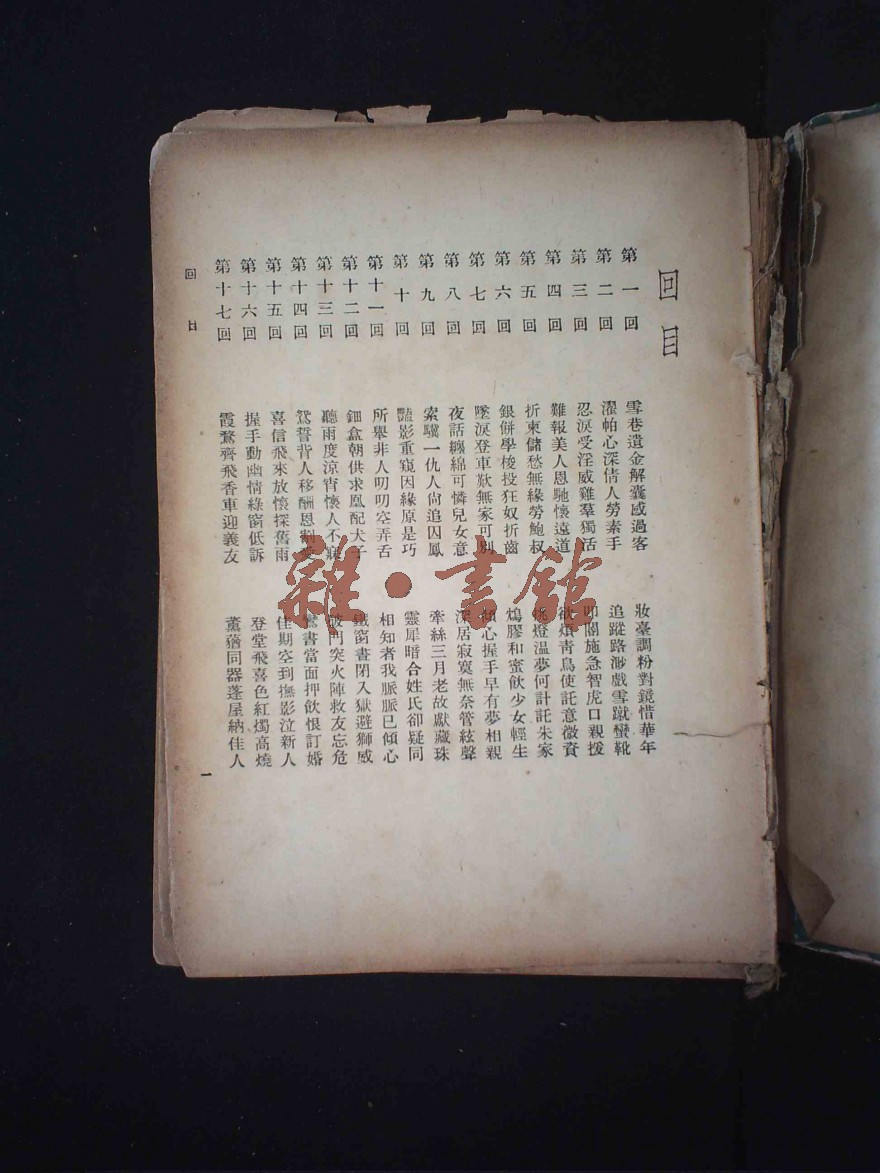 回目
第一回 雪巷遺金解囊感過客 妝臺調粉對鏡惜華年
第二回 濯帕心深倩人勞素手 追蹤路渺戲雪蹴蠻靴
第三回 忍淚受淫威雞羣獨活 叩閽施急智虎口親援
第四回 難報美人恩馳懷遠道 欲煩青鳥使託意微資
第五回 折柬儲愁無緣勞鮑叔 挑燈溫夢何計託朱家
第六回 銀併學梭投狂奴折齒 鴆膠和蜜飲少女輕生
第七回 墜淚登車歎無家可別 傾心握手早有夢相親
第八回 夜話纏綿可憐兒女意 深居寂寞無奈管絃聲
第九回 索驥一仇人尚追囚鳳 牽絲三月老故獻藏珠
第十回 豔影重窺因緣原是巧 靈犀暗合姓氏卻疑同
第十一回 所舉非人叨叨空弄舌 相知者我脈脈已傾心
第十二回 鈿盒朝供求凰配犬子 鐵窗晝閉入獄避獅威
第十三回 聽雨度涼宵懷人不寐 破門突火陣救友忘危
第十四回 鴛誓背人移酬恩割愛 鸞書當面押飲恨訂婚
第十五回 喜信飛來放懷探舊雨 佳期空到撫影泣新人
第十六回 握手動幽情綠窗低訴 登堂飛喜色紅燭高燒
第十七回 霞鶩齊飛香車迎義友 薰蕕同器蓬屋納佳人
回目
一
雜·書館